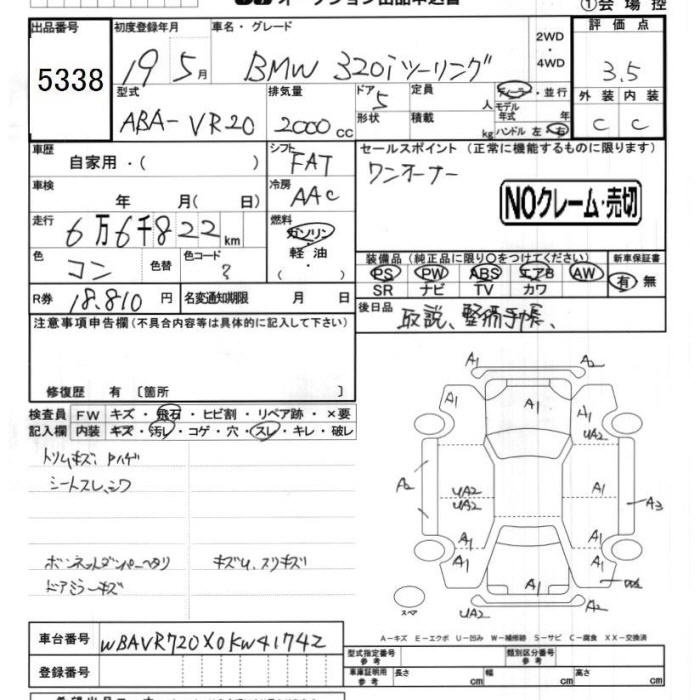 オークション出品申込書
①会場控
出品番号
5338
初度登録年月
19 5月
車名・グレード
BMW 320iツーリング
2WD
・
4WD
評価点
3.5
型式
ABA-VR20
排気量
2000 cc
ドア
5
形状
定員
人
積載
kg
ディーラー・並行
モデル
年式
年
ハンドル 左・右
外装 内装
C C
車歴
自家用・( )
シフト
FAT
セールスポイント(正常に機能するものに限ります)
ワンオーナー
NOクレーム・売切
車検
年 月( 日)
冷房
AAC
走行
6万6千822km
燃料
ガソリン・
軽油
・
色
コン
色替
色コード
?
装備品(純正品に限り○をつけてください)
PS PW ABS エアB AW
SR ナビ TV カワ
新車保証書
有 無
R券
18.810円
名変通知期限
月 日
後日品
取説、整備手帳、
注意事項申告欄(不具合内容等は具体的に記入して下さい)
修復歴 有〔箇所 〕
検査員
記入欄
FW キズ・飛石・ヒビ割・リペア跡・×要
内装 キズ・汚レ・コゲ・穴・スレ・キレ・破レ
トリムキズ、ハゲ
シートスレ、シワ
キズU、スリキズ
ドアミラーキズ
A1 A2
A1 A1 A1
UA2
A2 UA2 A1 A3
UA2
A1 A1 A1
A1 A1
UA2
スペア
A-キズ E-エクボ U-凹み W-補修跡 S-サビ C-腐食 XX-交換済
車台番号
WBAVR720X0KW41742
登録番号
型式指定番号
参考
類別区分番号
参考
車庫証明用
参考
長さ cm 幅 cm 高さ cm